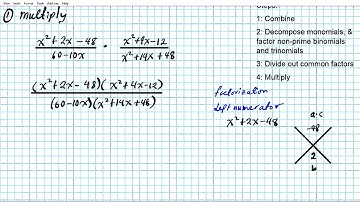 ① multiply
x²+2x-48 / 60-10x · x²+4x-12 / x²+14x+48
(x²+2x-48)(x²+4x-12) / (60-10x)(x²+14x+48)
1: Combine
2: Decompose monomials, &
factor non-prime binomials
and trinomials
3: Divide out common factors
4: Multiply
factorization
left numerator
x²+2x-48
a·c
-48
2
b